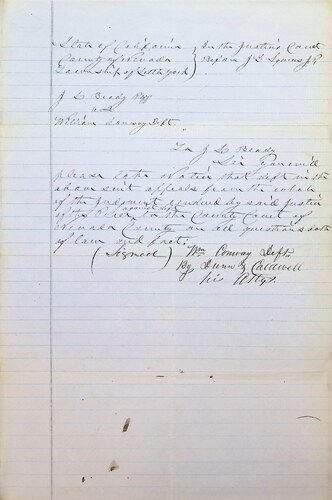 State of California } In the Justice's Court
County of Nevada } Before J S Squires J.P.
Township of Little York }
J L Beady Plff
vs
William Conway Deft.
To J L Beady
Sir you will
please take notice that deft in the
above suit appeals from the whole
of the Judgment rendered by said Justice
against to the County Court of
Nevada County on all questions both
of law and fact.
(Signed) Wm Conway Deft.
By Dunn & Caldwell
his Attys